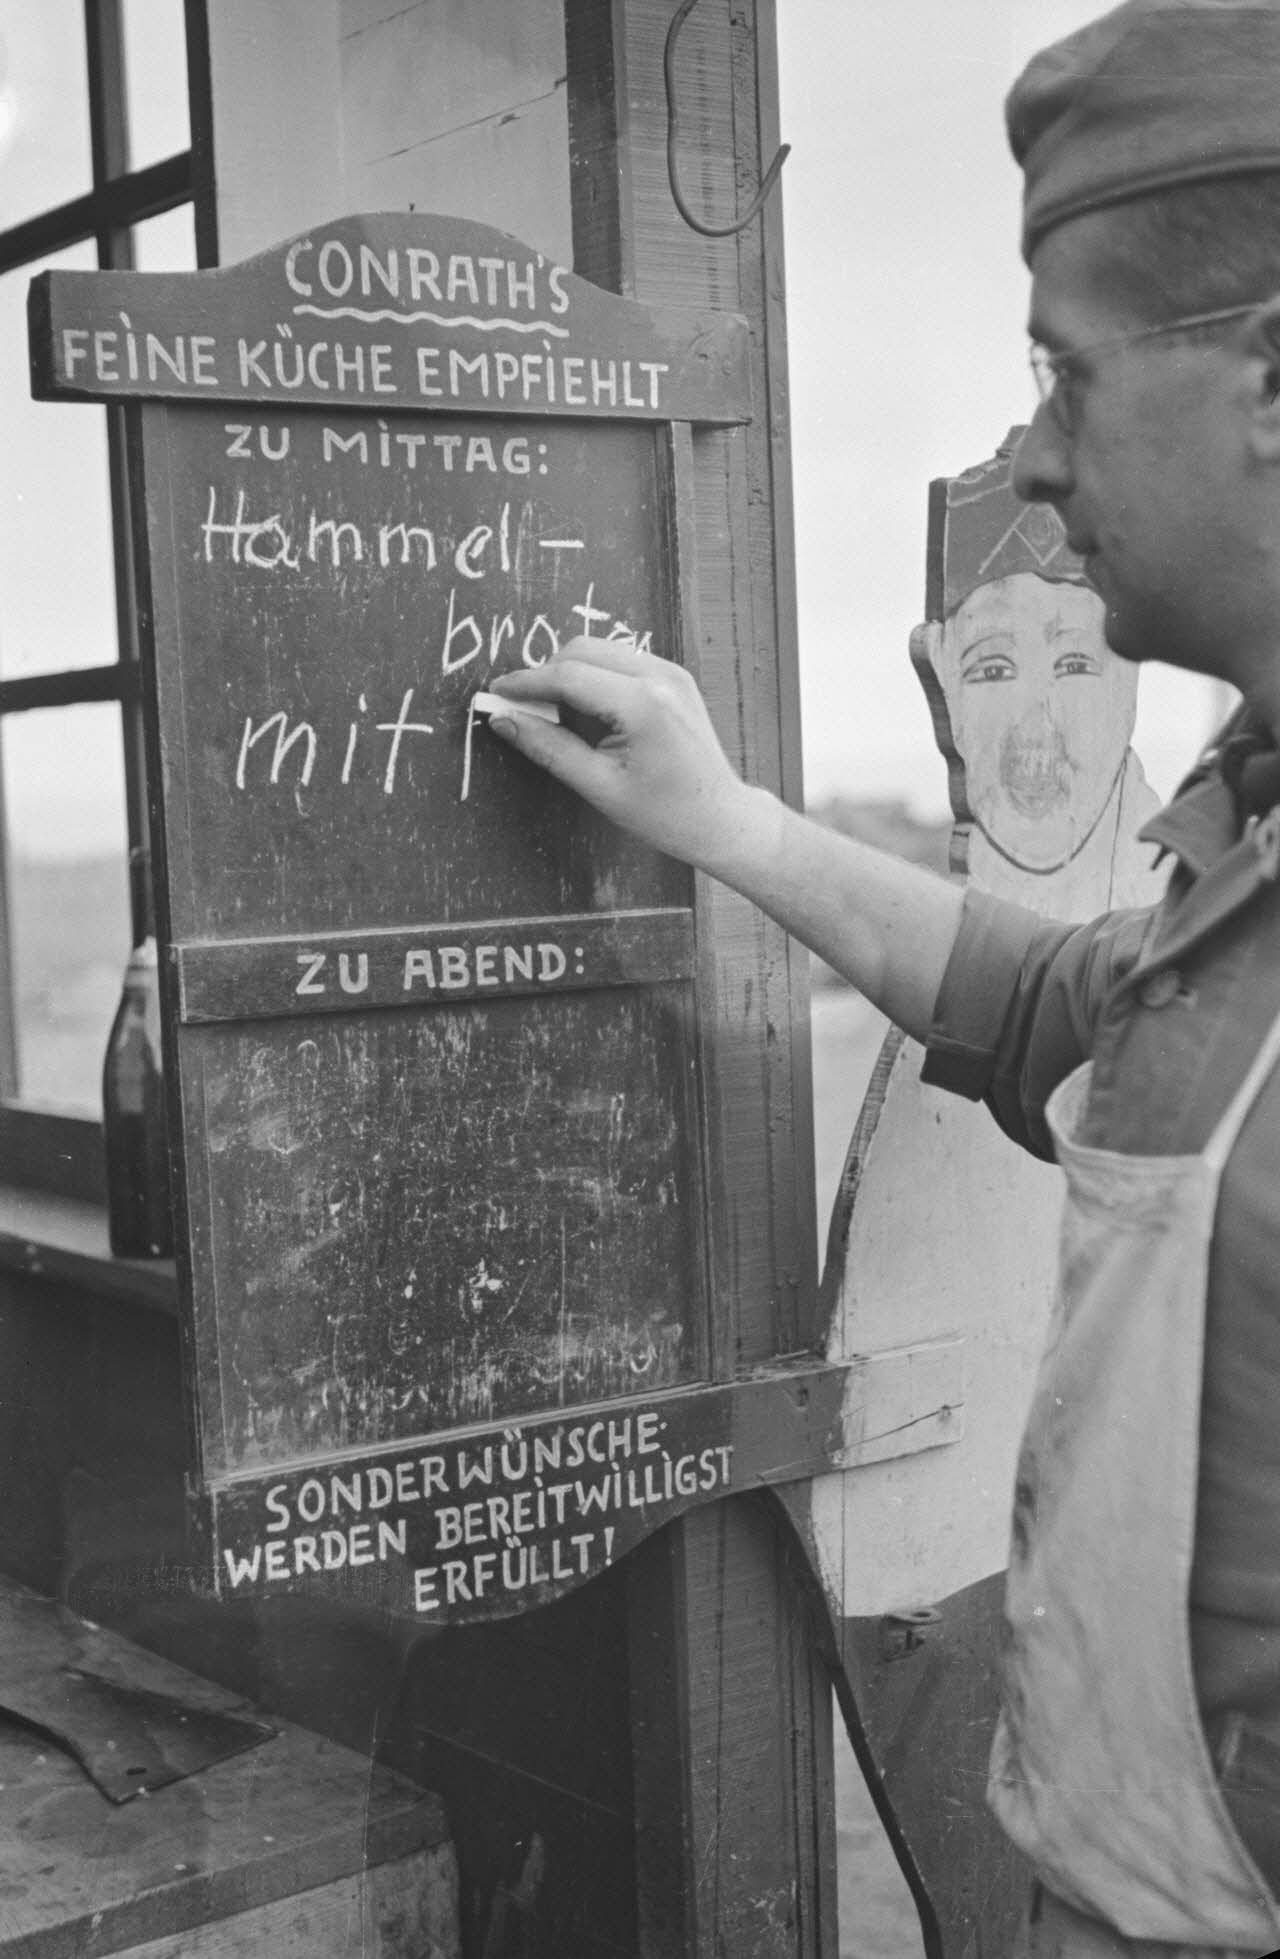 CONRATH'S
FEINE KÜCHE EMPFIEHLT
ZU MITTAG:
Hammel-
braten
mit
ZU ABEND:
SONDERWÜNSCHE
WERDEN BEREITWILLIGST
ERFÜLLT!